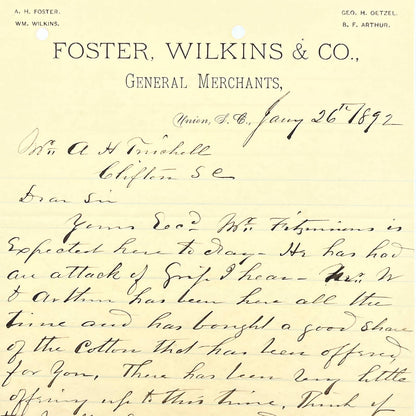 A. H. FOSTER.
WM. WILKINS.
GEO. H. OETZEL.
B. F. ARTHUR.
FOSTER, WILKINS & CO.,
GENERAL MERCHANTS,
Union, S. C., Jany 26th 1892
Mr A H Twichell
Clifton S C
Dear Sir
Yours Recd. Mr. Fitzsimons is
Expected here to day - He has had
an attack of Grip I hear - Mr. W
D Arthur has been here all the
time and has bought a good share
of the Cotton that has been offered
for You, There has been very little
offering up to this time, Think if